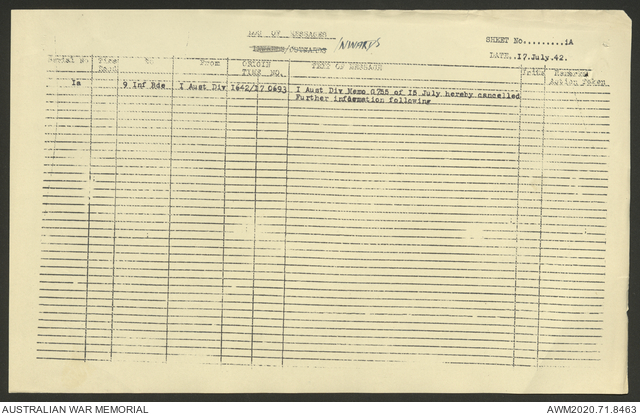 LOG OF MESSAGES
INWARDS/OUTWARDS INWARDS
SHEET No.........1A
DATE..17.July.42.
Serial No Time Recd. To From ORIGIN TIME NO. TEXT OF MESSAGE Prity Remarks Action Taken
1a 9 Inf Bde I Aust Div 1642/17 O693 I Aust Div Memo G755 of 15 July hereby cancelled
Further information following
AUSTRALIAN WAR MEMORIAL
AWM2020.71.8463